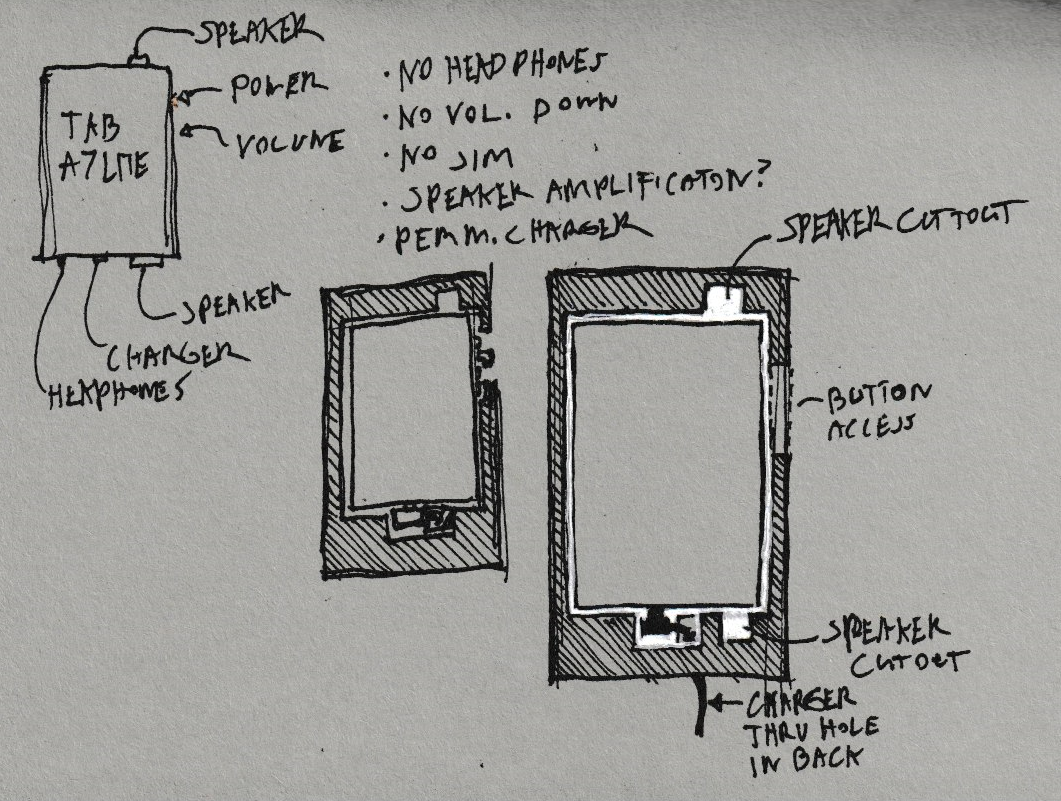 SPEAKER
POWER
VOLUME
TAB
A7 LITE
SPEAKER
CHARGER
HEADPHONES
· NO HEADPHONES
· NO VOL. DOWN
· NO SIM
· SPEAKER AMPLIFICATON?
· PERM. CHARGER
SPEAKER CUTOUT
BUTTON
ACCESS
SPEAKER
CUTOUT
CHARGER
THRU HOLE
IN BACK